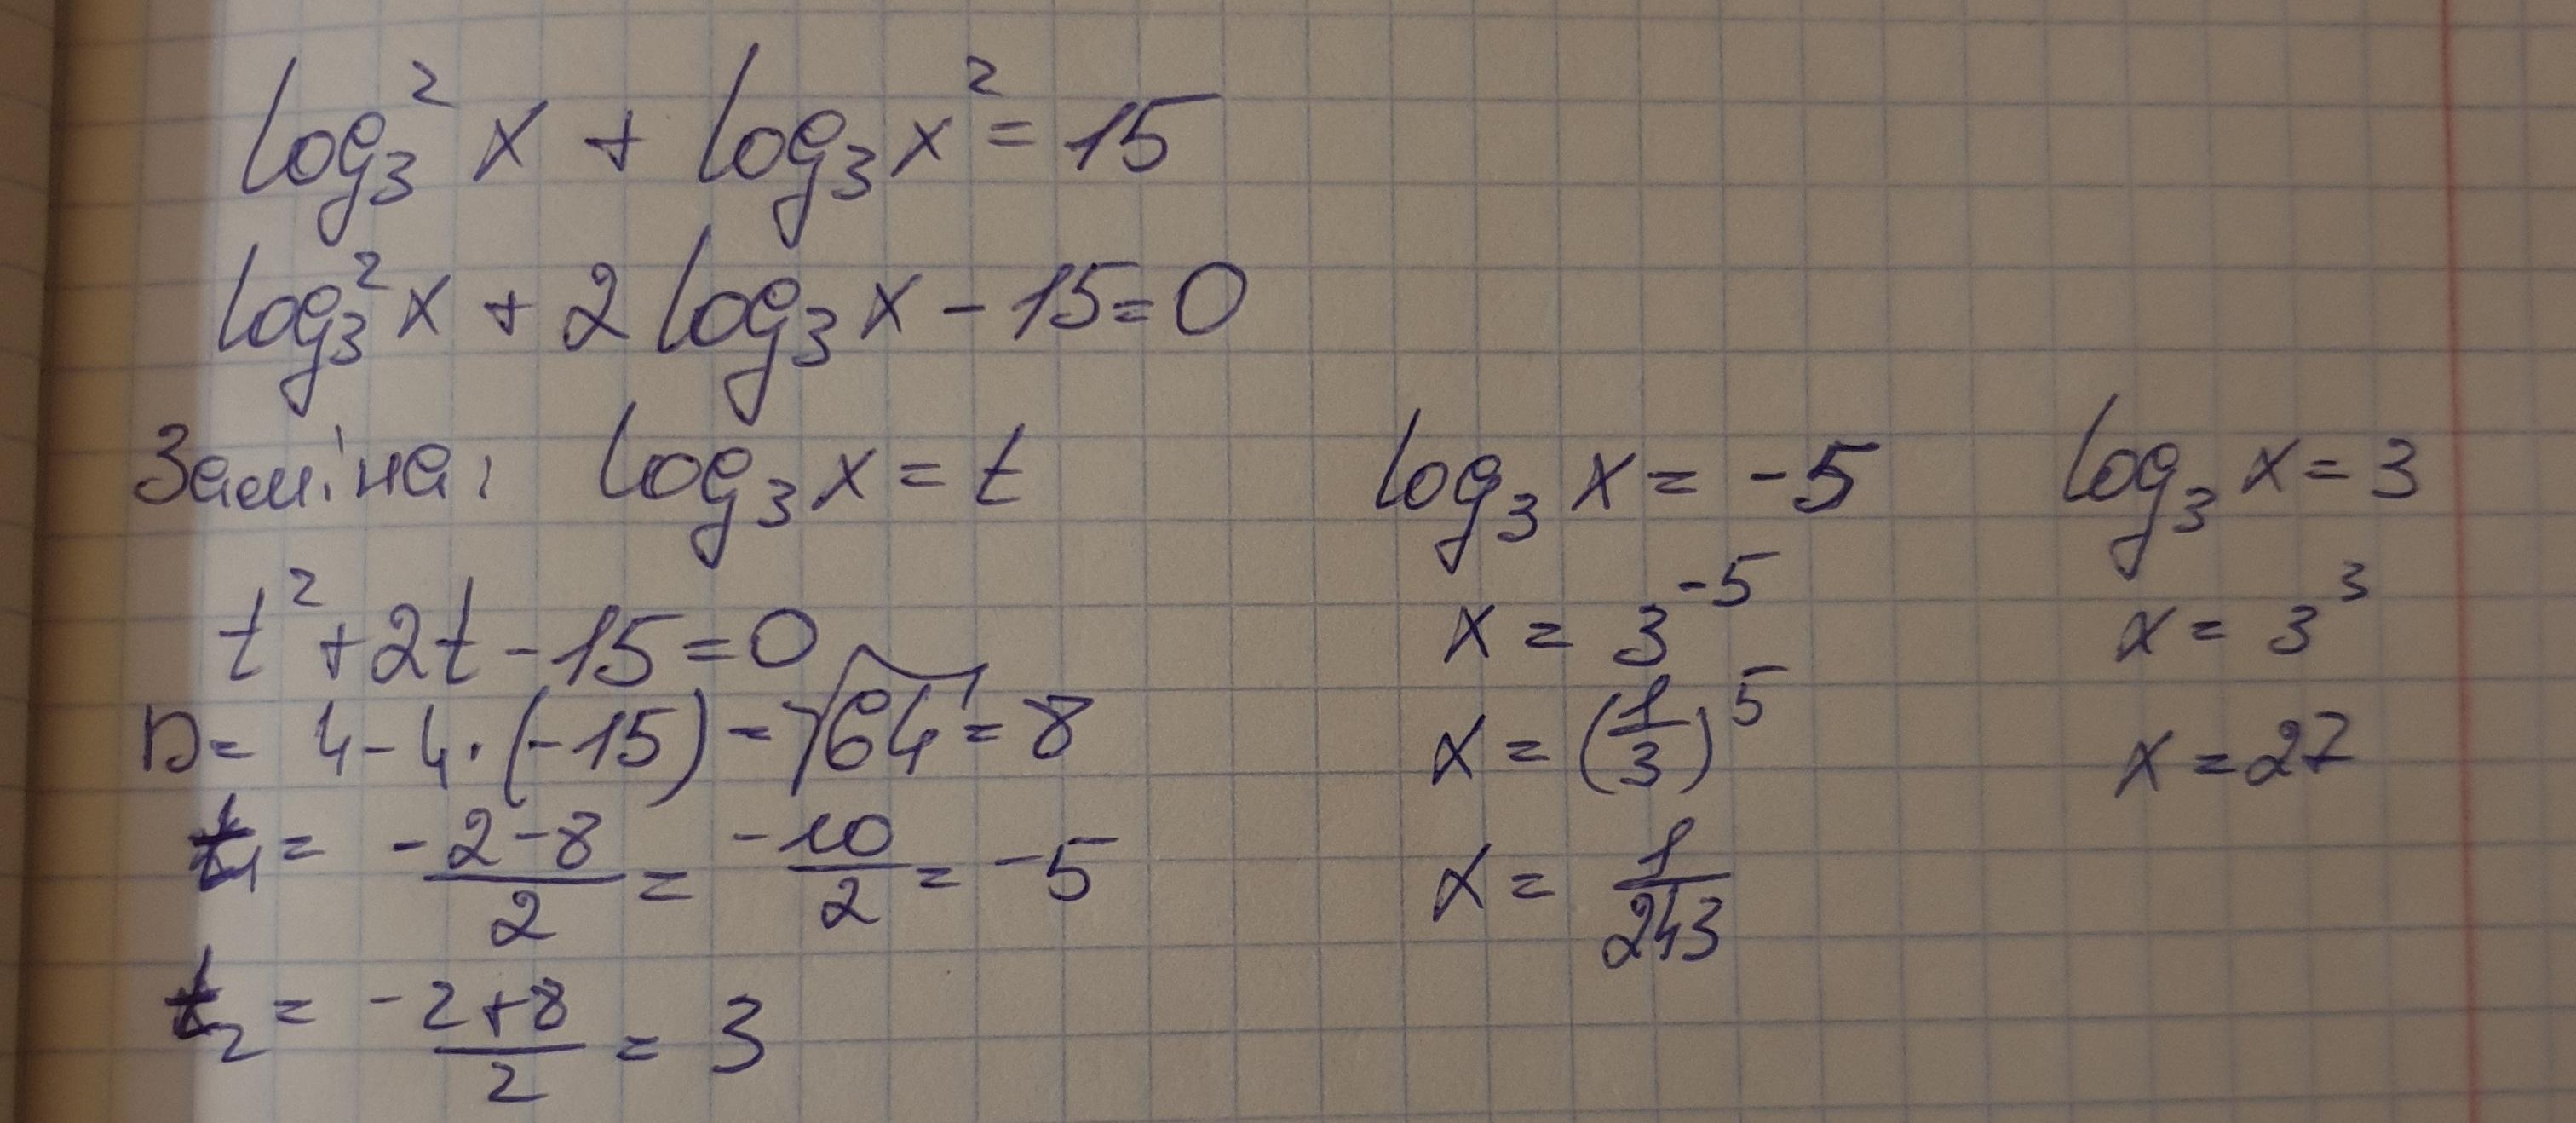 log₃² x + log₃ x² = 15
log₃² x + 2 log₃ x - 15 = 0
Заміна: log₃ x = t
t² + 2t - 15 = 0
D = 4 - 4 · (-15) = √64 = 8
t₁ = (-2-8)/2 = -10/2 = -5
t₂ = (-2+8)/2 = 3
log₃ x = -5
x = 3⁻⁵
x = (1/3)⁵
x = 1/243
log₃ x = 3
x = 3³
x = 27